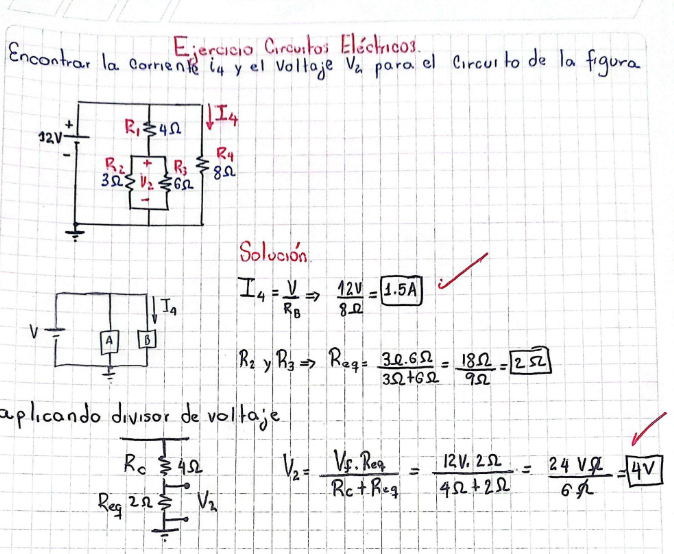 Ejercicio Circuitos Eléctricos.
Encontrar la corriente i4 y el voltaje V2 para el circuito de la figura
I4
+
12V
-
R1 4Ω
R2
3Ω
+
V2
-
R3
6Ω
R4
8Ω
Solución
I4 = V/RB ⇒ 12V/8Ω = 1.5A
V
A
B
I4
R2 y R3 ⇒ Req = 3Ω.6Ω/3Ω+6Ω = 18Ω/9Ω = 2Ω
aplicando divisor de voltaje
Rc 4Ω
Req 2Ω
V2
V2 = Vf.Req/Rc+Req = 12V.2Ω/4Ω+2Ω = 24VΩ/6Ω = 4V